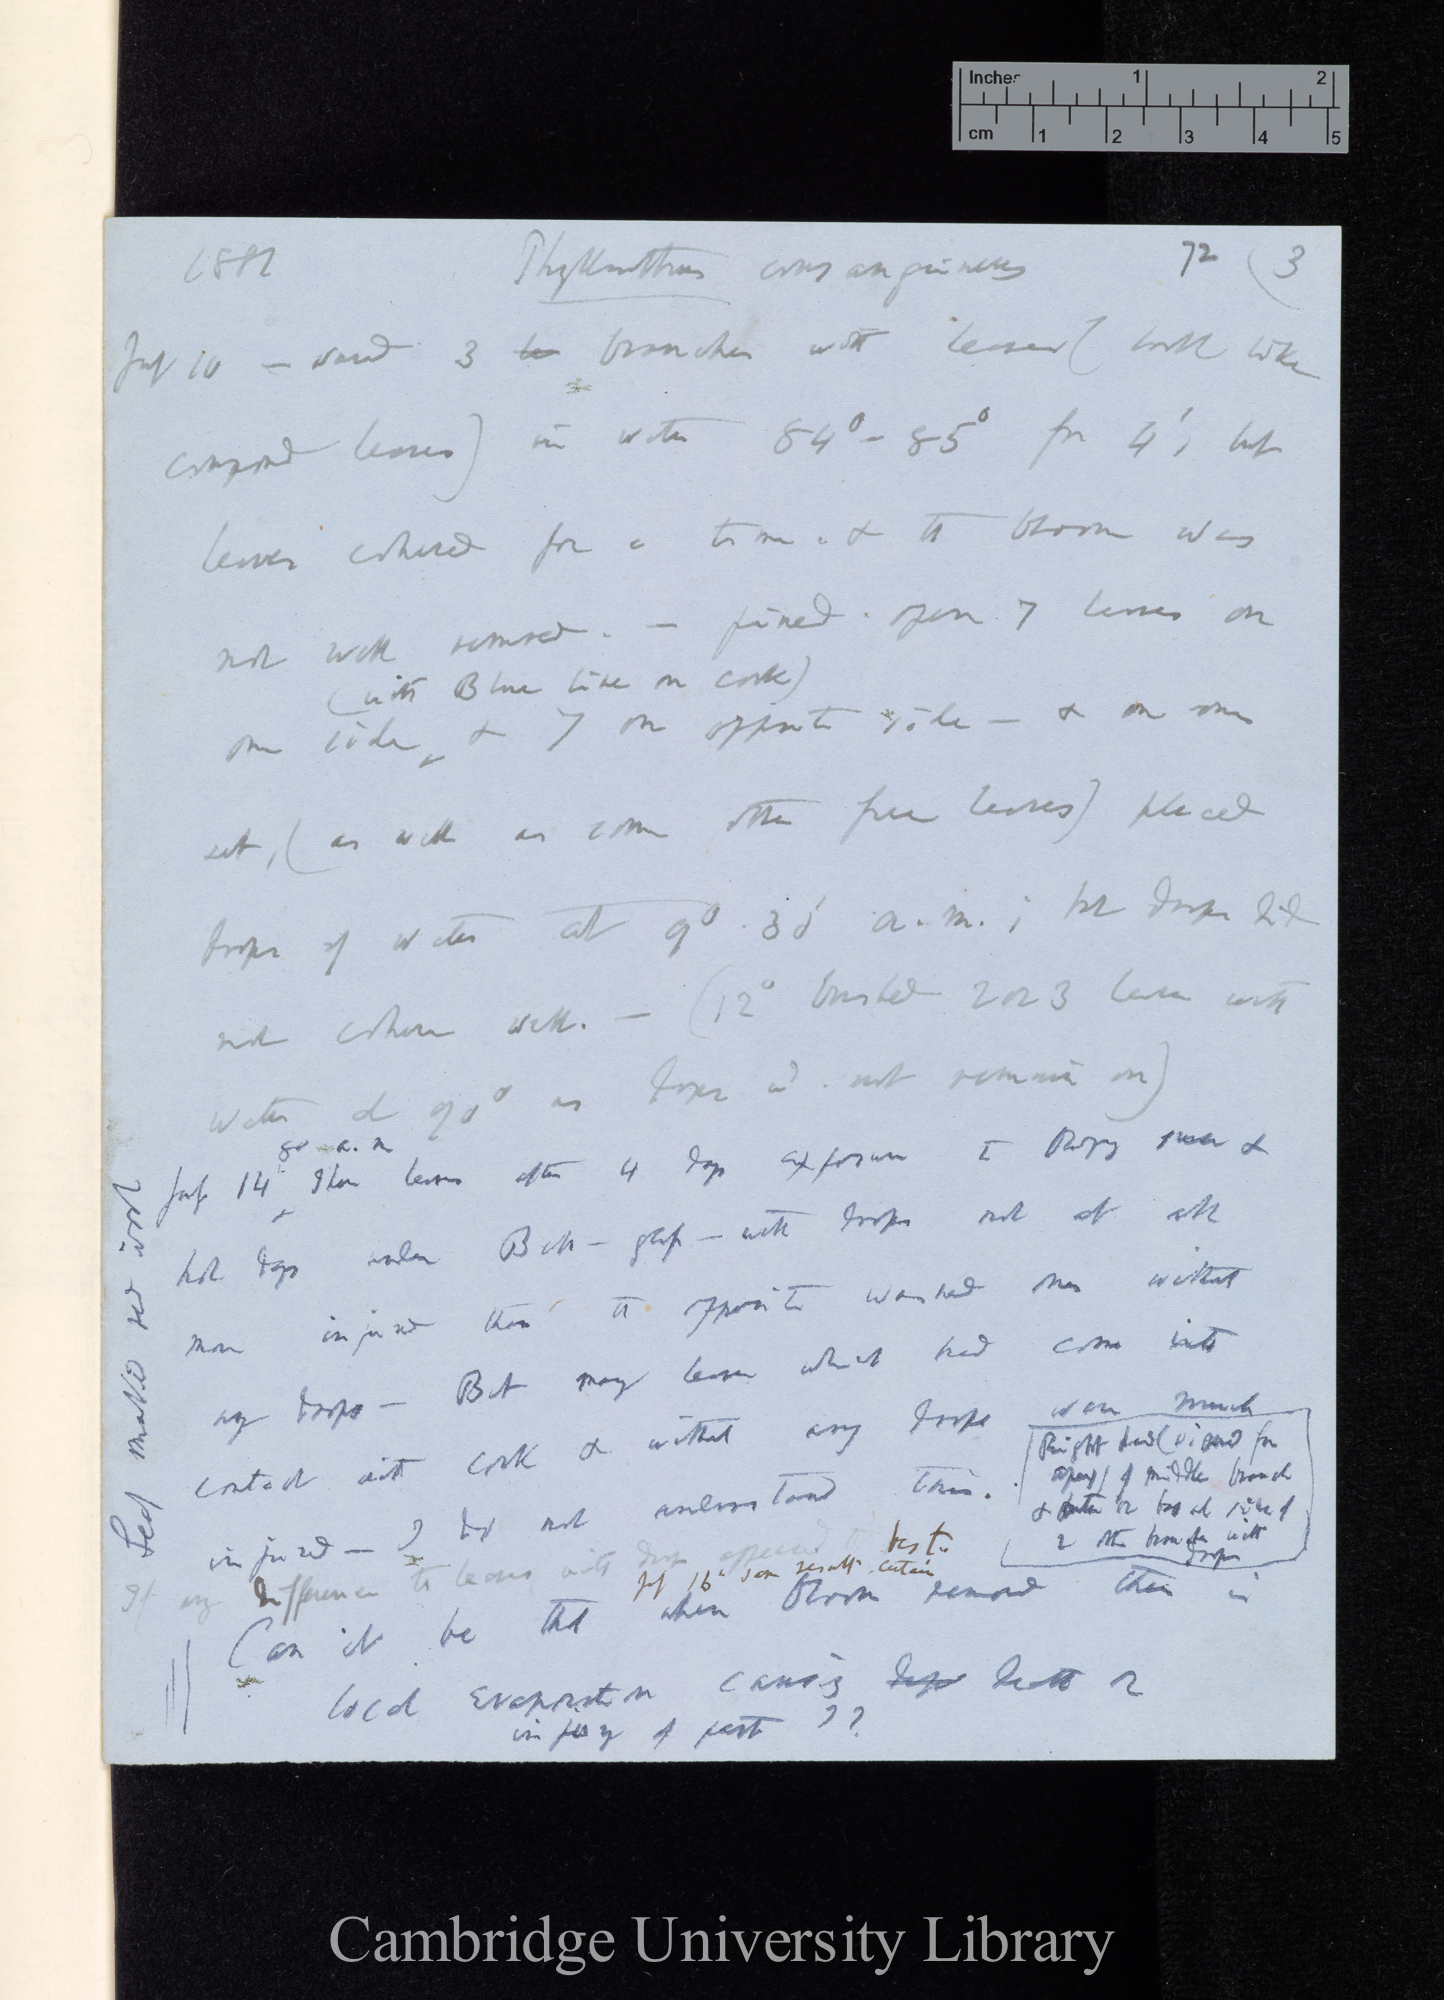 Inches 1 2
cm 1 2 3 4 5
1881 Phyllanthus consanguineus 72 (3
July 10 — 3 branches with leaves (look like
compound leaves) in water 84° - 85° for 4', but
leaves cohered for a time & the bloom was
not well removed. — pinned open 7 leaves on
(with Blue line on cork)
one side, & 7 on opposite side — & on one
set, (as well as some other free leaves) placed
drops of water at 9° 30' a.m.; but drops did
not cohere well. — (12° brushed 2 or 3 leaves with
water at 90° as drops did not remain on)
8° a.m
July 14 These leaves after 4 days exposure &
hot days under Bell-glass — with drops not at all
more injured than the opposite washed ones without
any drops — But many leaves which had come into
contact with cork & without any drops were much
injured — I do not understand this.
Right hand (viewed from
apex) of middle branch
& or basal side of
2 other branches with
drops
If any difference the leaves with drops appeared the best
July 16 same result certain
Can it be that when bloom removed there is
local evaporation causing death or
injury of part ??
Leaf make red wool
Cambridge University Library